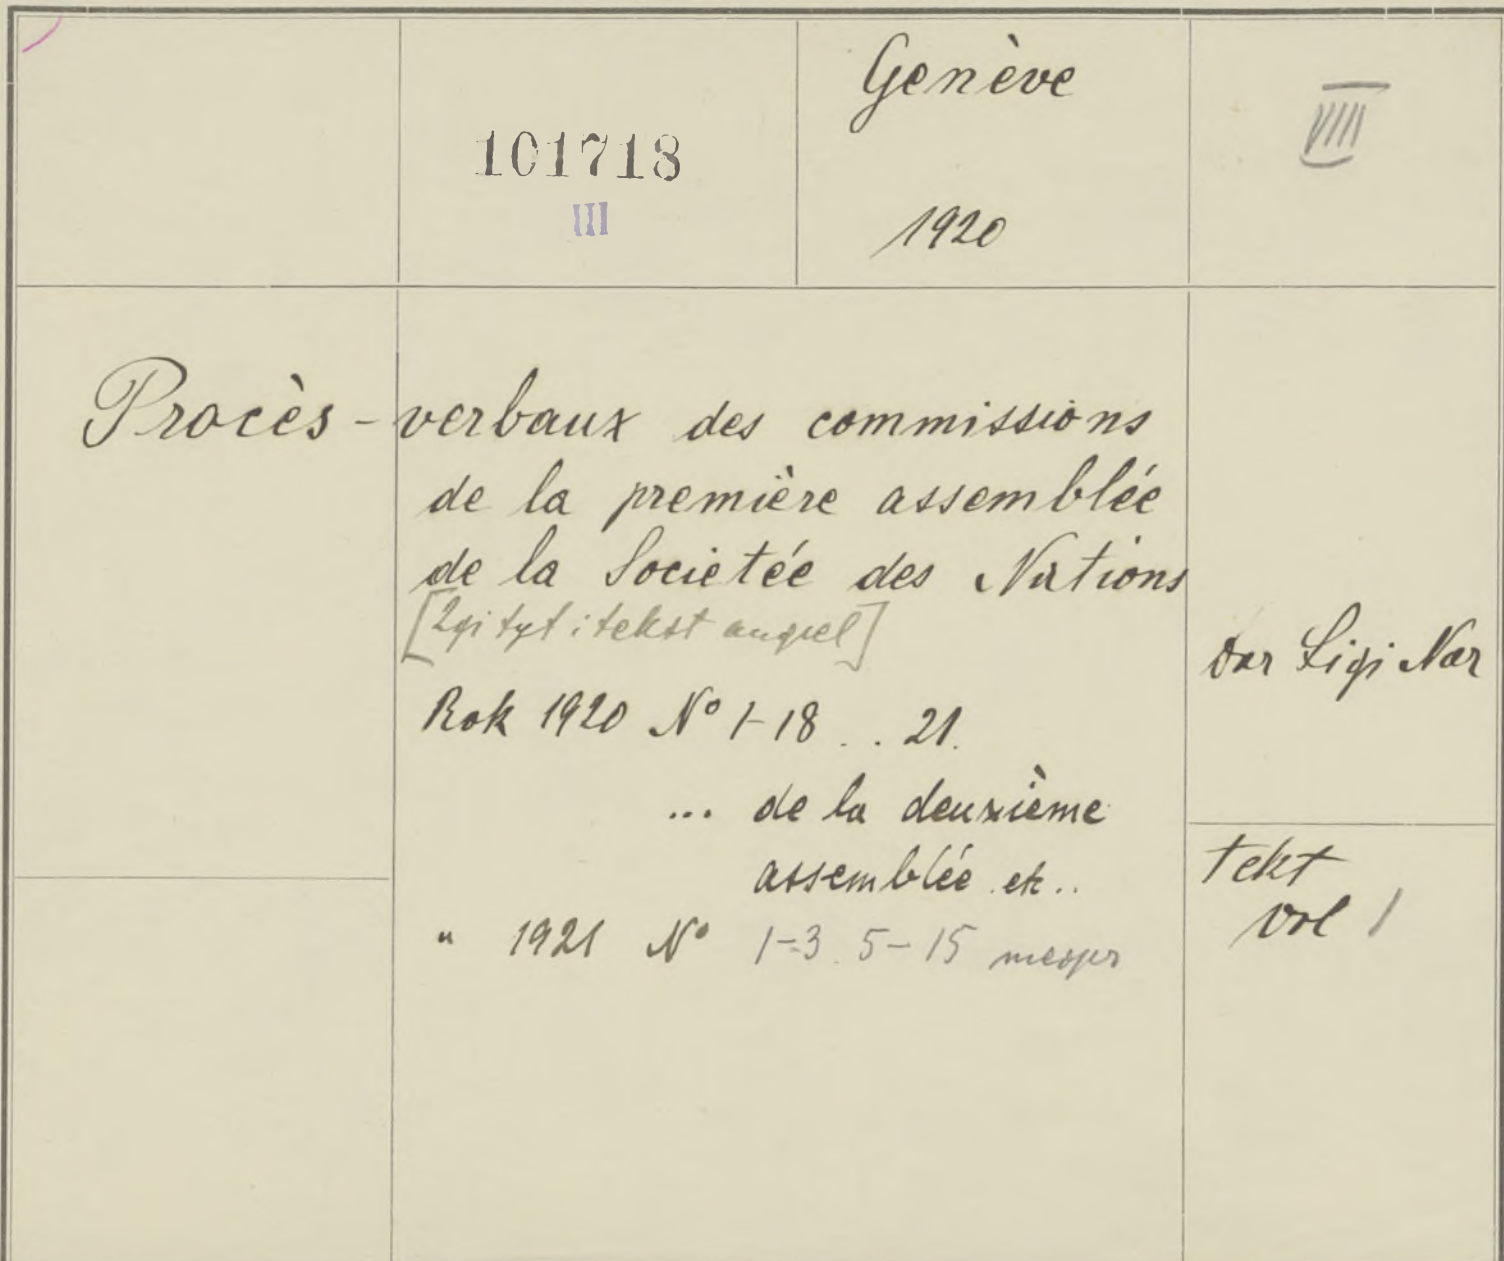 Genève
1920
101718
III
VIIII
Procès-verbaux des commissions
de la première assemblée
de la Societée des Nations
[2gi tyt i tekst angiel]
Rok 1920 Nº 1-18 .. 21.
... de la deuxième
assemblée etc..
" 1921 Nº 1-3. 5-15
dar Ligi Nar
tekt
vol 1